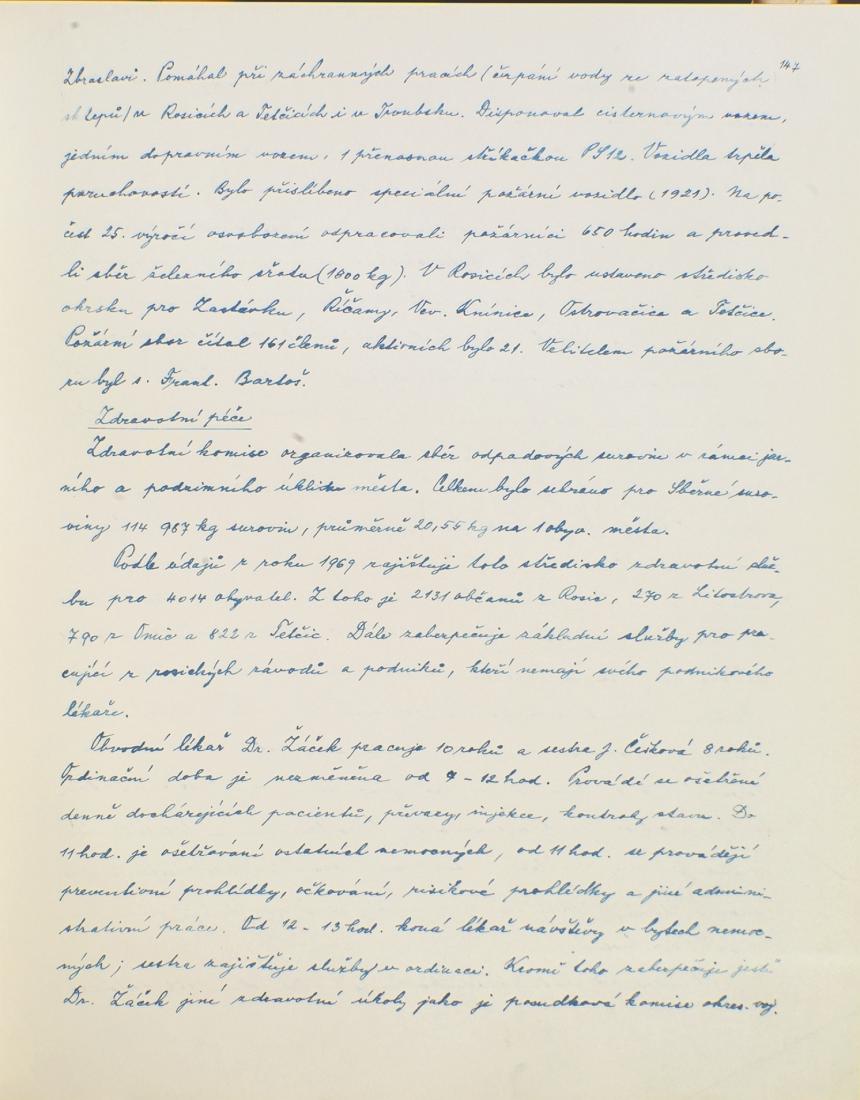 147
Zbraslavi. Pomáhal při záchranných pracích (čerpání vody ze zatopených
sklepů) v Rosicích a Tetčicích i v Troubsku. Disponoval cisternovým vozem,
jedním dopravním vozem, 1 přenosnou stříkačkou PS12. Vozidla trpěla
poruchovostí. Bylo přislíbeno speciální požární vozidlo (1921). Na po-
čest 25. výročí osvobození odpracovali požárníci 650 hodin a proved-
li sběr železného šrotu (1800 kg). V Rosicích bylo ustaveno středisko
okrsku pro Zastávku, Říčany, Vev. Knínice, Ostrovačice a Tetčice.
Požární sbor čítal 161 členů, aktivních bylo 21. Velitelem požárního sbo-
ru byl s. Frant. Bartoš.
Zdravotní péče
Zdravotní komise organizovala sběr odpadových surovin v rámci jar-
ního a podzimního úklidu města. Celkem bylo sebráno pro Sběrné suro-
viny 114 987 kg surovin, průměrně 20,55 kg na 1 obyv. města.
Podle údajů z roku 1969 zajišťuje toto středisko zdravotní služ-
bu pro 4014 obyvatel. Z toho je 2131 občanů z Rosic, 270 z Litostrova,
790 z Omic a 822 z Tetčic. Dále zabezpečuje základní služby pro pra-
cující z rosických závodů a podniků, kteří nemají svého podnikového
lékaře.
Obvodní lékař Dr. Žáček pracuje 10 roků a sestra J. Češková 8 roků.
Ordinační doba je nezměněna od 7 - 12 hod. Provádí se ošetření
denně docházejících pacientů, převazy, injekce, kontroly stavu. Do
11 hod. je ošetřování ostatních nemocných, od 11 hod. se provádějí
preventivní prohlídky, očkování, risikové prohlídky a jiné admini-
strativní práce. Od 12 - 13 hod. koná lékař návštěvy v bytech nemoc-
ných; sestra zajišťuje služby v ordinaci. Kromě toho zabezpečuje ještě
Dr. Žáček jiné zdravotní úkoly jako je posudková komise okres. voj.